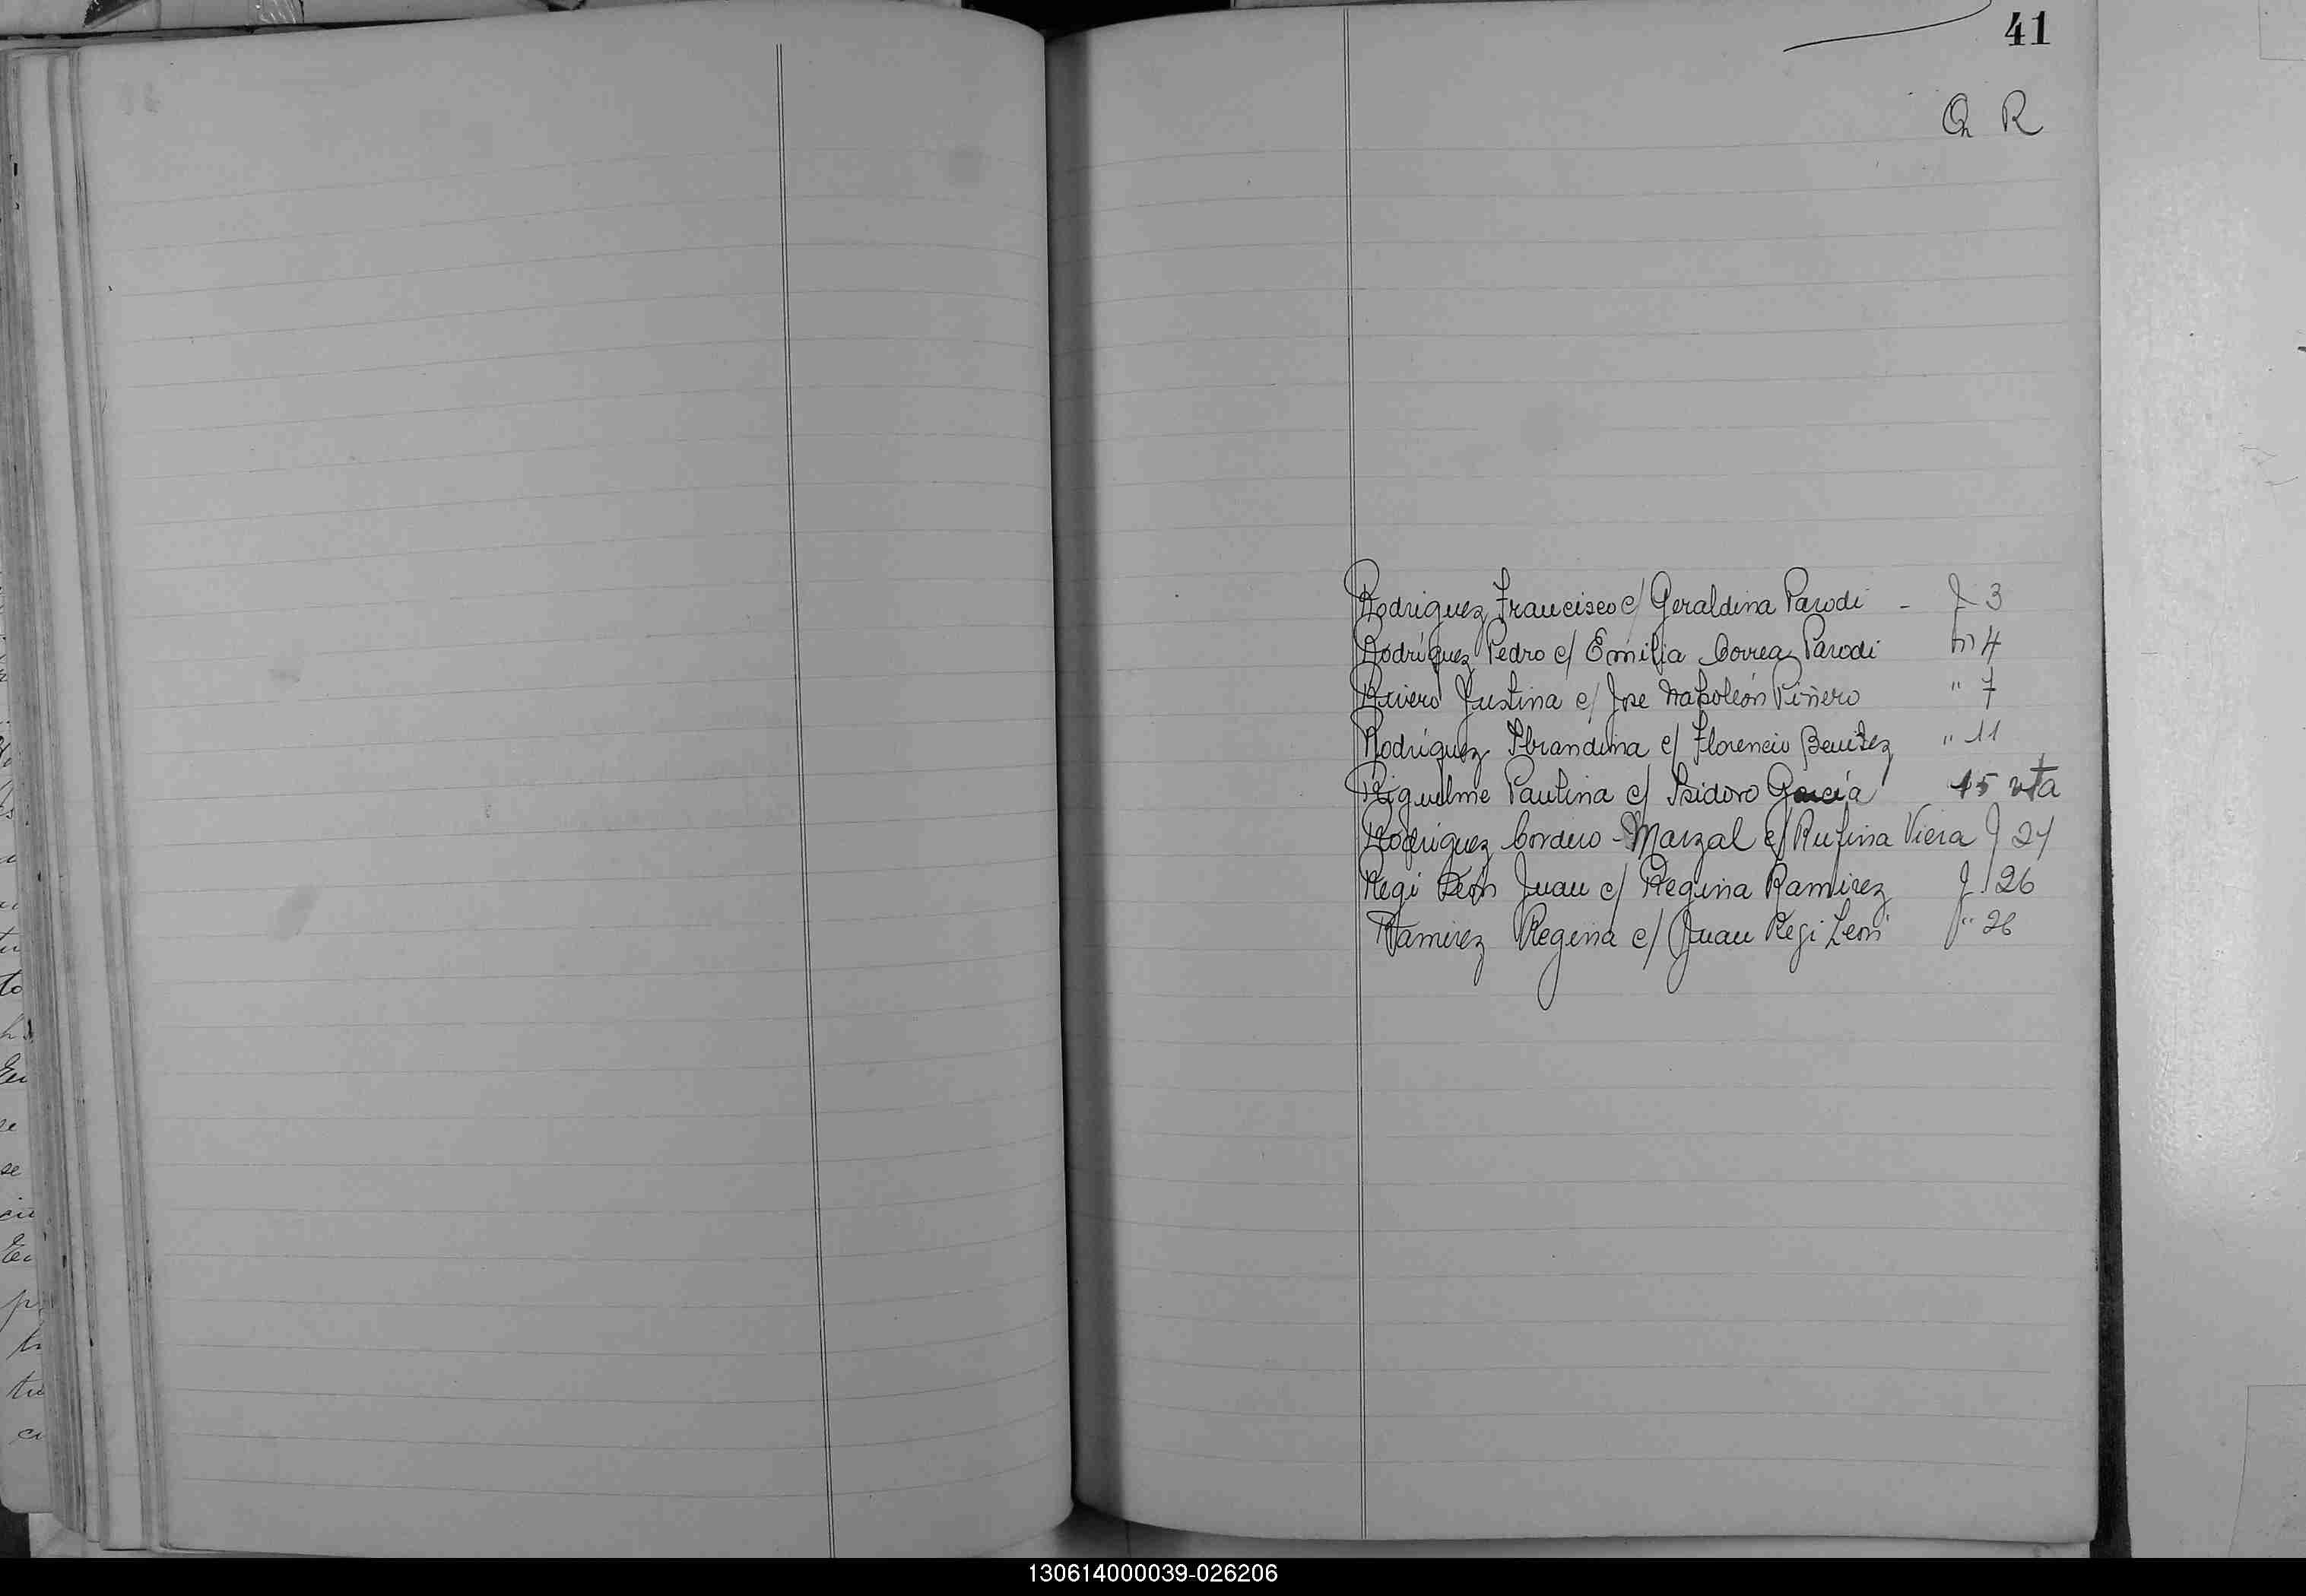 41
Q R
Rodriguez Francisco c/ Geraldina Parodi - f 3
Rodríguez Pedro c/ Emilia Correa Parodi " 4
Rivero Justina c/ Jose Napoleón Piñero " 7
Rodríguez Ibrandina c/ Florencio Benitez " 11
Riquelme Paulina c/ Isidoro García 15 vta
Rodriguez Cordero Marzal c/ Rufina Viera f 24
Regi León Juan c/ Regina Ramirez f 26
Ramirez Regina c/ Juan Regi León " 26
130614000039-026206